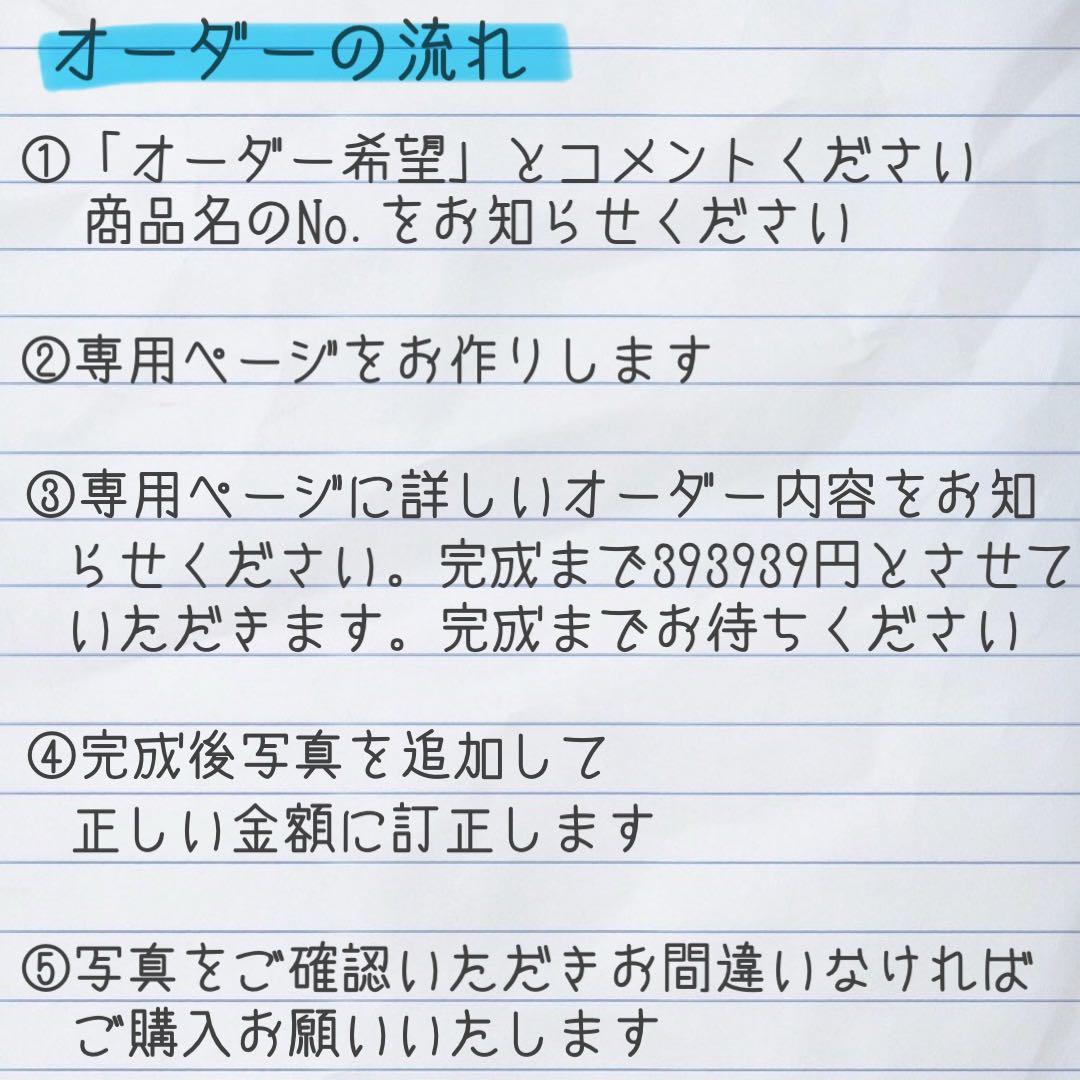 オーダーの流れ
①「オーダー希望」とコメントください
商品名のNo.をお知らせください
②専用ページをお作りします
③専用ページに詳しいオーダー内容をお知
らせください。完成まで393939円とさせて
いただきます。完成までお待ちください
④完成後写真を追加して
正しい金額に訂正します
⑤写真をご確認いただきお間違いなければ
ご購入お願いいたします